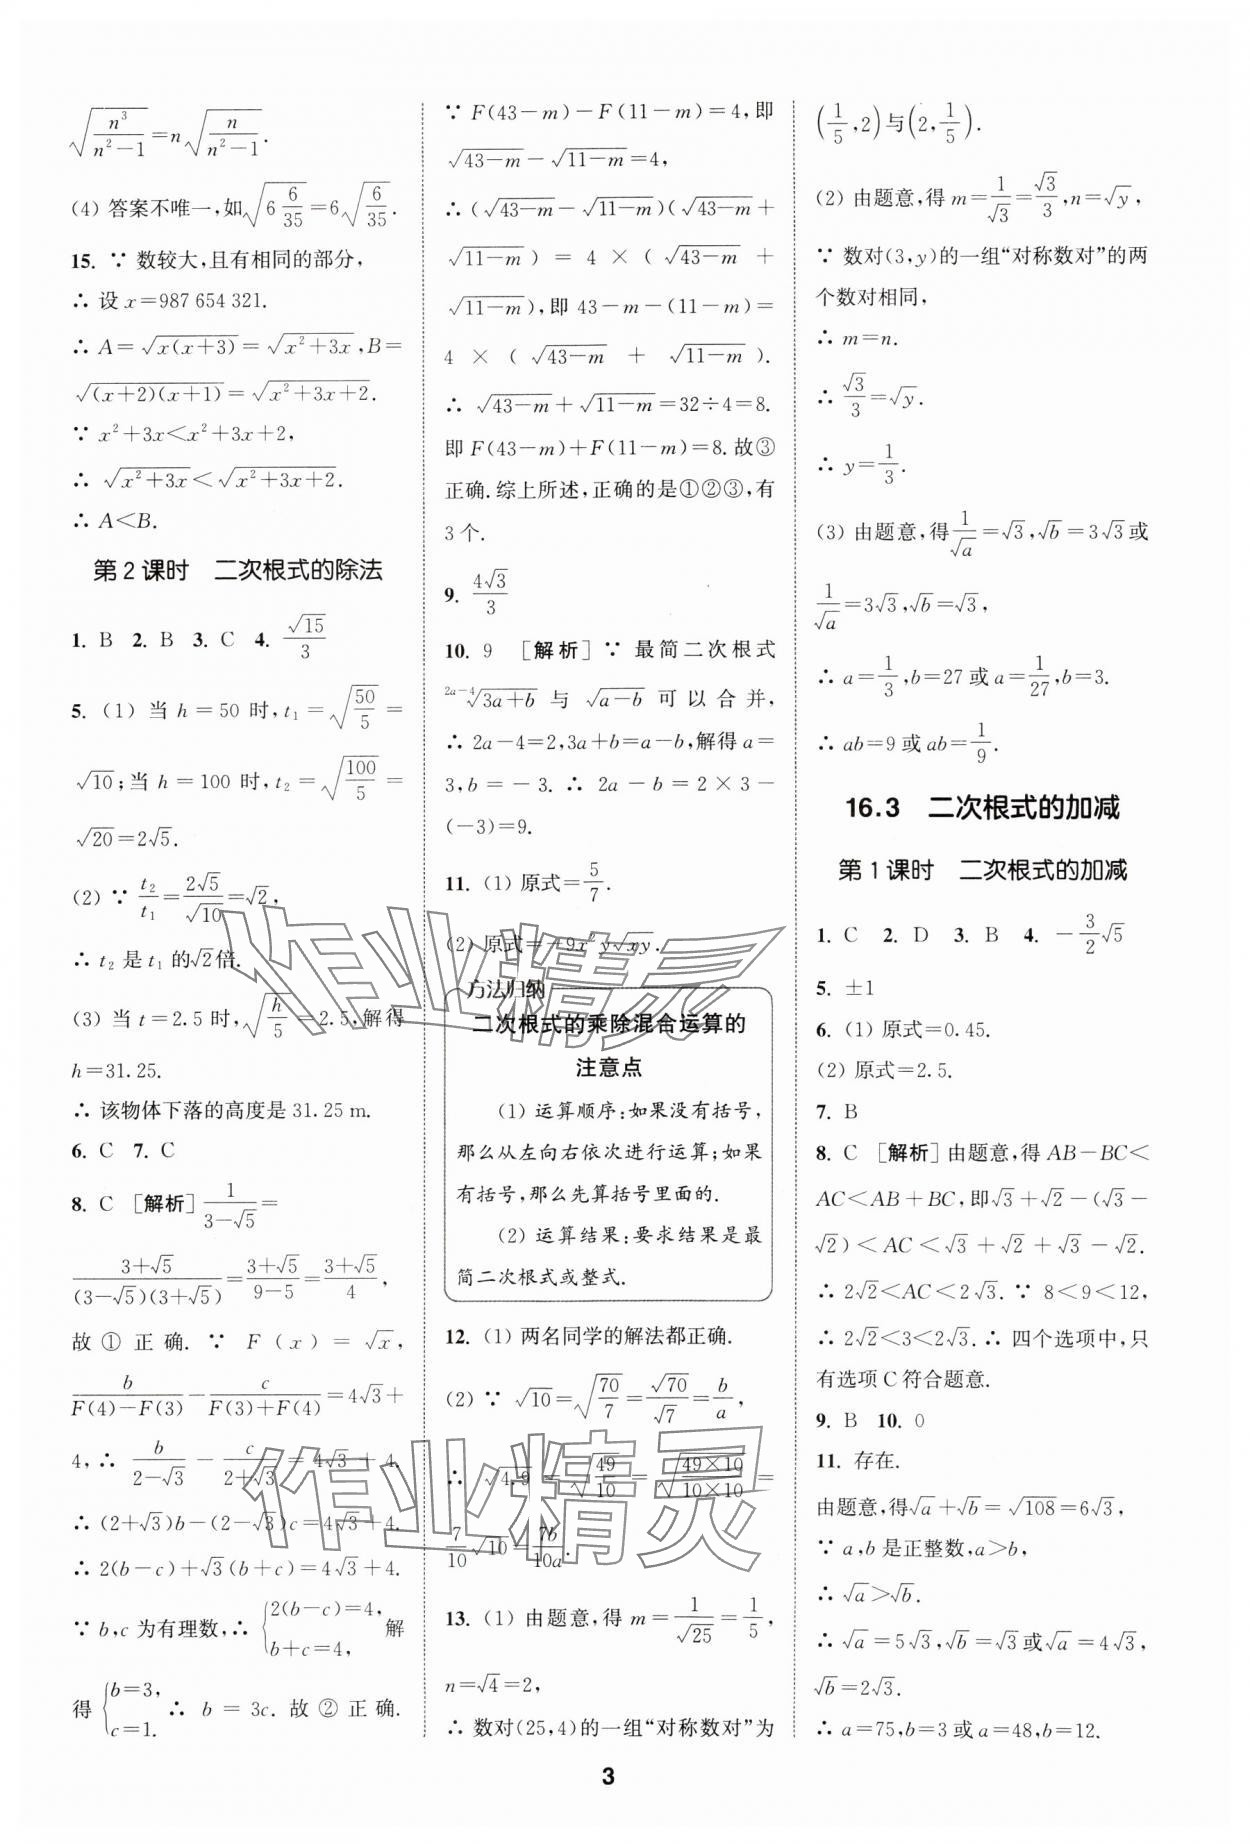 √(n³/(n²－1))＝n√(n/(n²－1)).
(4) 答案不唯一,如√(6 6/35)＝6√(6/35).
15. ∵ 数较大,且有相同的部分,
∴ 设 x＝987 654 321.
∴ A＝√(x(x＋3))＝√(x²＋3x),B＝
√((x＋2)(x＋1))＝√(x²＋3x＋2).
∵ x²＋3x＜x²＋3x＋2,
∴ √(x²＋3x)＜√(x²＋3x＋2).
∴ A＜B.
第 2 课时 二次根式的除法
1. B 2. B 3. C 4. √15/3
5. (1) 当 h＝50 时,t₁＝√(50/5)＝
√10;当 h＝100 时,t₂＝√(100/5)＝
√20＝2√5.
(2) ∵ t₂/t₁＝2√5/√10＝√2,
∴ t₂ 是 t₁ 的√2倍.
(3) 当 t＝2.5 时,√(h/5)＝2.5,解得
h＝31.25.
∴ 该物体下落的高度是 31.25 m.
6. C 7. C
8. C [解析] 1/(3－√5)＝
(3＋√5)/((3－√5)(3＋√5))＝(3＋√5)/(9－5)＝(3＋√5)/4,
故 ① 正确. ∵ F(x)＝√x,
b/(F(4)－F(3))－c/(F(3)＋F(4))＝4√3＋
4,∴ b/(2－√3)－c/(2＋√3)＝4√3＋4.
∴ (2＋√3)b－(2－√3)c＝4√3＋4.
∴ 2(b－c)＋√3(b＋c)＝4√3＋4.
∵ b,c 为有理数,∴ {2(b－c)＝4, b＋c＝4, 解
得 {b＝3, c＝1. ∴ b＝3c. 故 ② 正确.
∵ F(43－m)－F(11－m)＝4,即
√(43－m)－√(11－m)＝4,
∴ (√(43－m)－√(11－m))(√(43－m)＋
√(11－m))＝4×(√(43－m)＋
√(11－m)),即 43－m－(11－m)＝
4×(√(43－m)＋√(11－m)).
∴ √(43－m)＋√(11－m)＝32÷4＝8.
即 F(43－m)＋F(11－m)＝8.故③
正确.综上所述,正确的是①②③,有
3个.
9. 4√3/3
10. 9 [解析] ∵ 最简二次根式
²ᵃ⁻⁴√(3a＋b) 与 √(a－b) 可以合并,
∴ 2a－4＝2,3a＋b＝a－b,解得 a＝
3,b＝－3. ∴ 2a－b＝2×3－
(－3)＝9.
11. (1) 原式＝5/7.
(2) 原式＝－9x²y√(xy).
方法归纳
二次根式的乘除混合运算的
注意点
(1) 运算顺序:如果没有括号,
那么从左向右依次进行运算;如果
有括号,那么先算括号里面的.
(2) 运算结果:要求结果是最
简二次根式或整式.
12. (1) 两名同学的解法都正确.
(2) ∵ √10＝√(70/7)＝√70/√7＝b/a,
∴ √4.9＝√(49/10)＝√((49×10)/(10×10))＝
7/10√10＝7b/10a.
13. (1) 由题意,得 m＝1/√25＝1/5,
n＝√4＝2,
∴ 数对(25,4)的一组“对称数对”为
(1/5,2)与(2,1/5).
(2) 由题意,得 m＝1/√3＝√3/3,n＝√y,
∵ 数对(3,y)的一组“对称数对”的两
个数对相同,
∴ m＝n.
∴ √3/3＝√y.
∴ y＝1/3.
(3) 由题意,得1/√a＝√3,√b＝3√3或
1/√a＝3√3,√b＝√3,
∴ a＝1/3,b＝27 或 a＝1/27,b＝3.
∴ ab＝9 或 ab＝1/9.
16.3 二次根式的加减
第 1 课时 二次根式的加减
1. C 2. D 3. B 4. －3/2√5
5. ±1
6. (1) 原式＝0.45.
(2) 原式＝2.5.
7. B
8. C [解析] 由题意,得 AB－BC＜
AC＜AB＋BC,即√3＋√2－(√3－
√2)＜AC＜√3＋√2＋√3－√2.
∴ 2√2＜AC＜2√3. ∵ 8＜9＜12,
∴ 2√2＜3＜2√3. ∴ 四个选项中,只
有选项 C 符合题意.
9. B 10. 0
11. 存在.
由题意,得√a＋√b＝√108＝6√3,
∵ a,b 是正整数,a＞b,
∴ √a＞√b.
∴ √a＝5√3,√b＝√3或√a＝4√3,
√b＝2√3.
∴ a＝75,b＝3 或 a＝48,b＝12.
3
作业精灵
作业精灵